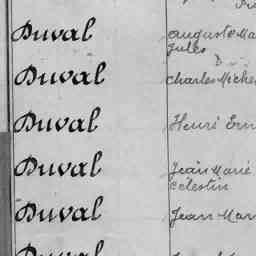 Duval Auguste Ma
Jules
D
Duval Charles Miche
Duval Henri Ern
Duval Jean Marie
Célestin
Duval Jean Mar
Duval